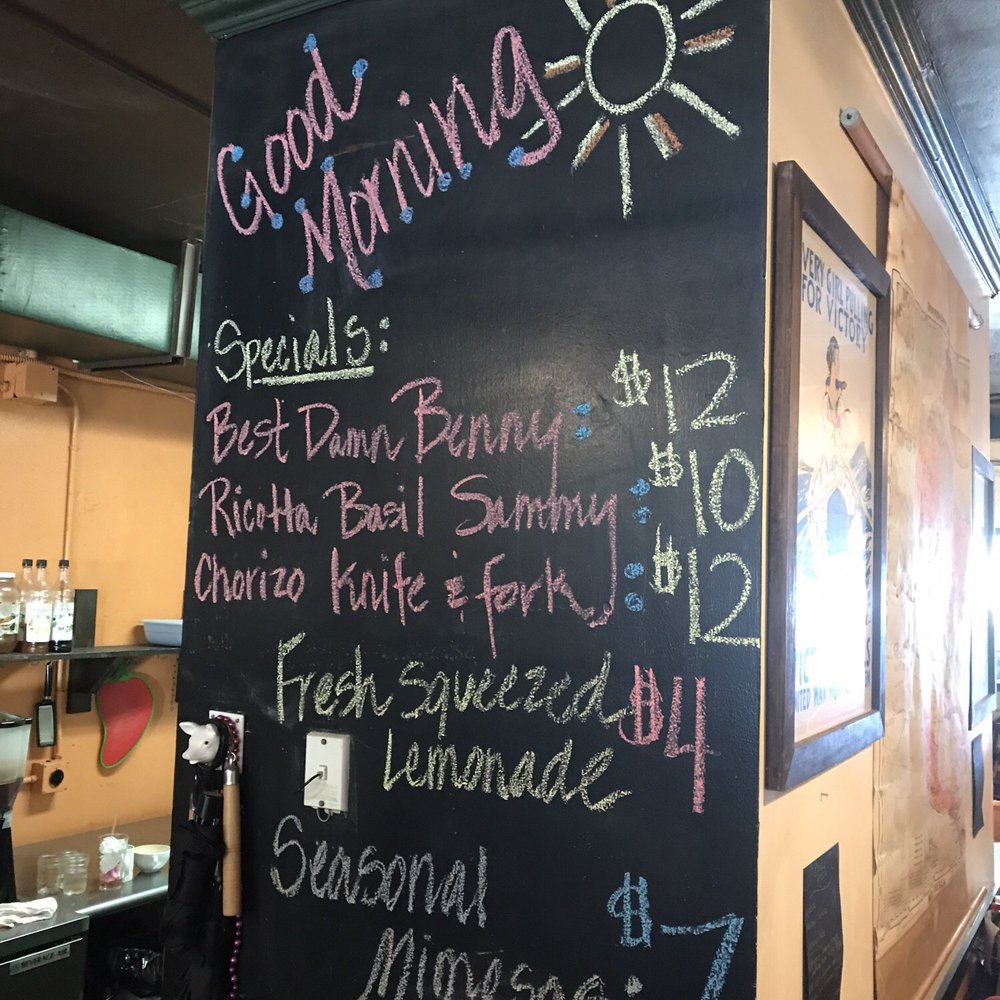 Good
Morning
Specials:
Best Damn Benny: $12
Ricotta Basil Sammy: $10
Chorizo Knife & Fork: $12
Fresh Squeezed $4
Lemonade
Seasonal
Mimosa: $7
VERY GIRL PULLING
FOR VICTORY
BEVERAGE-AIR